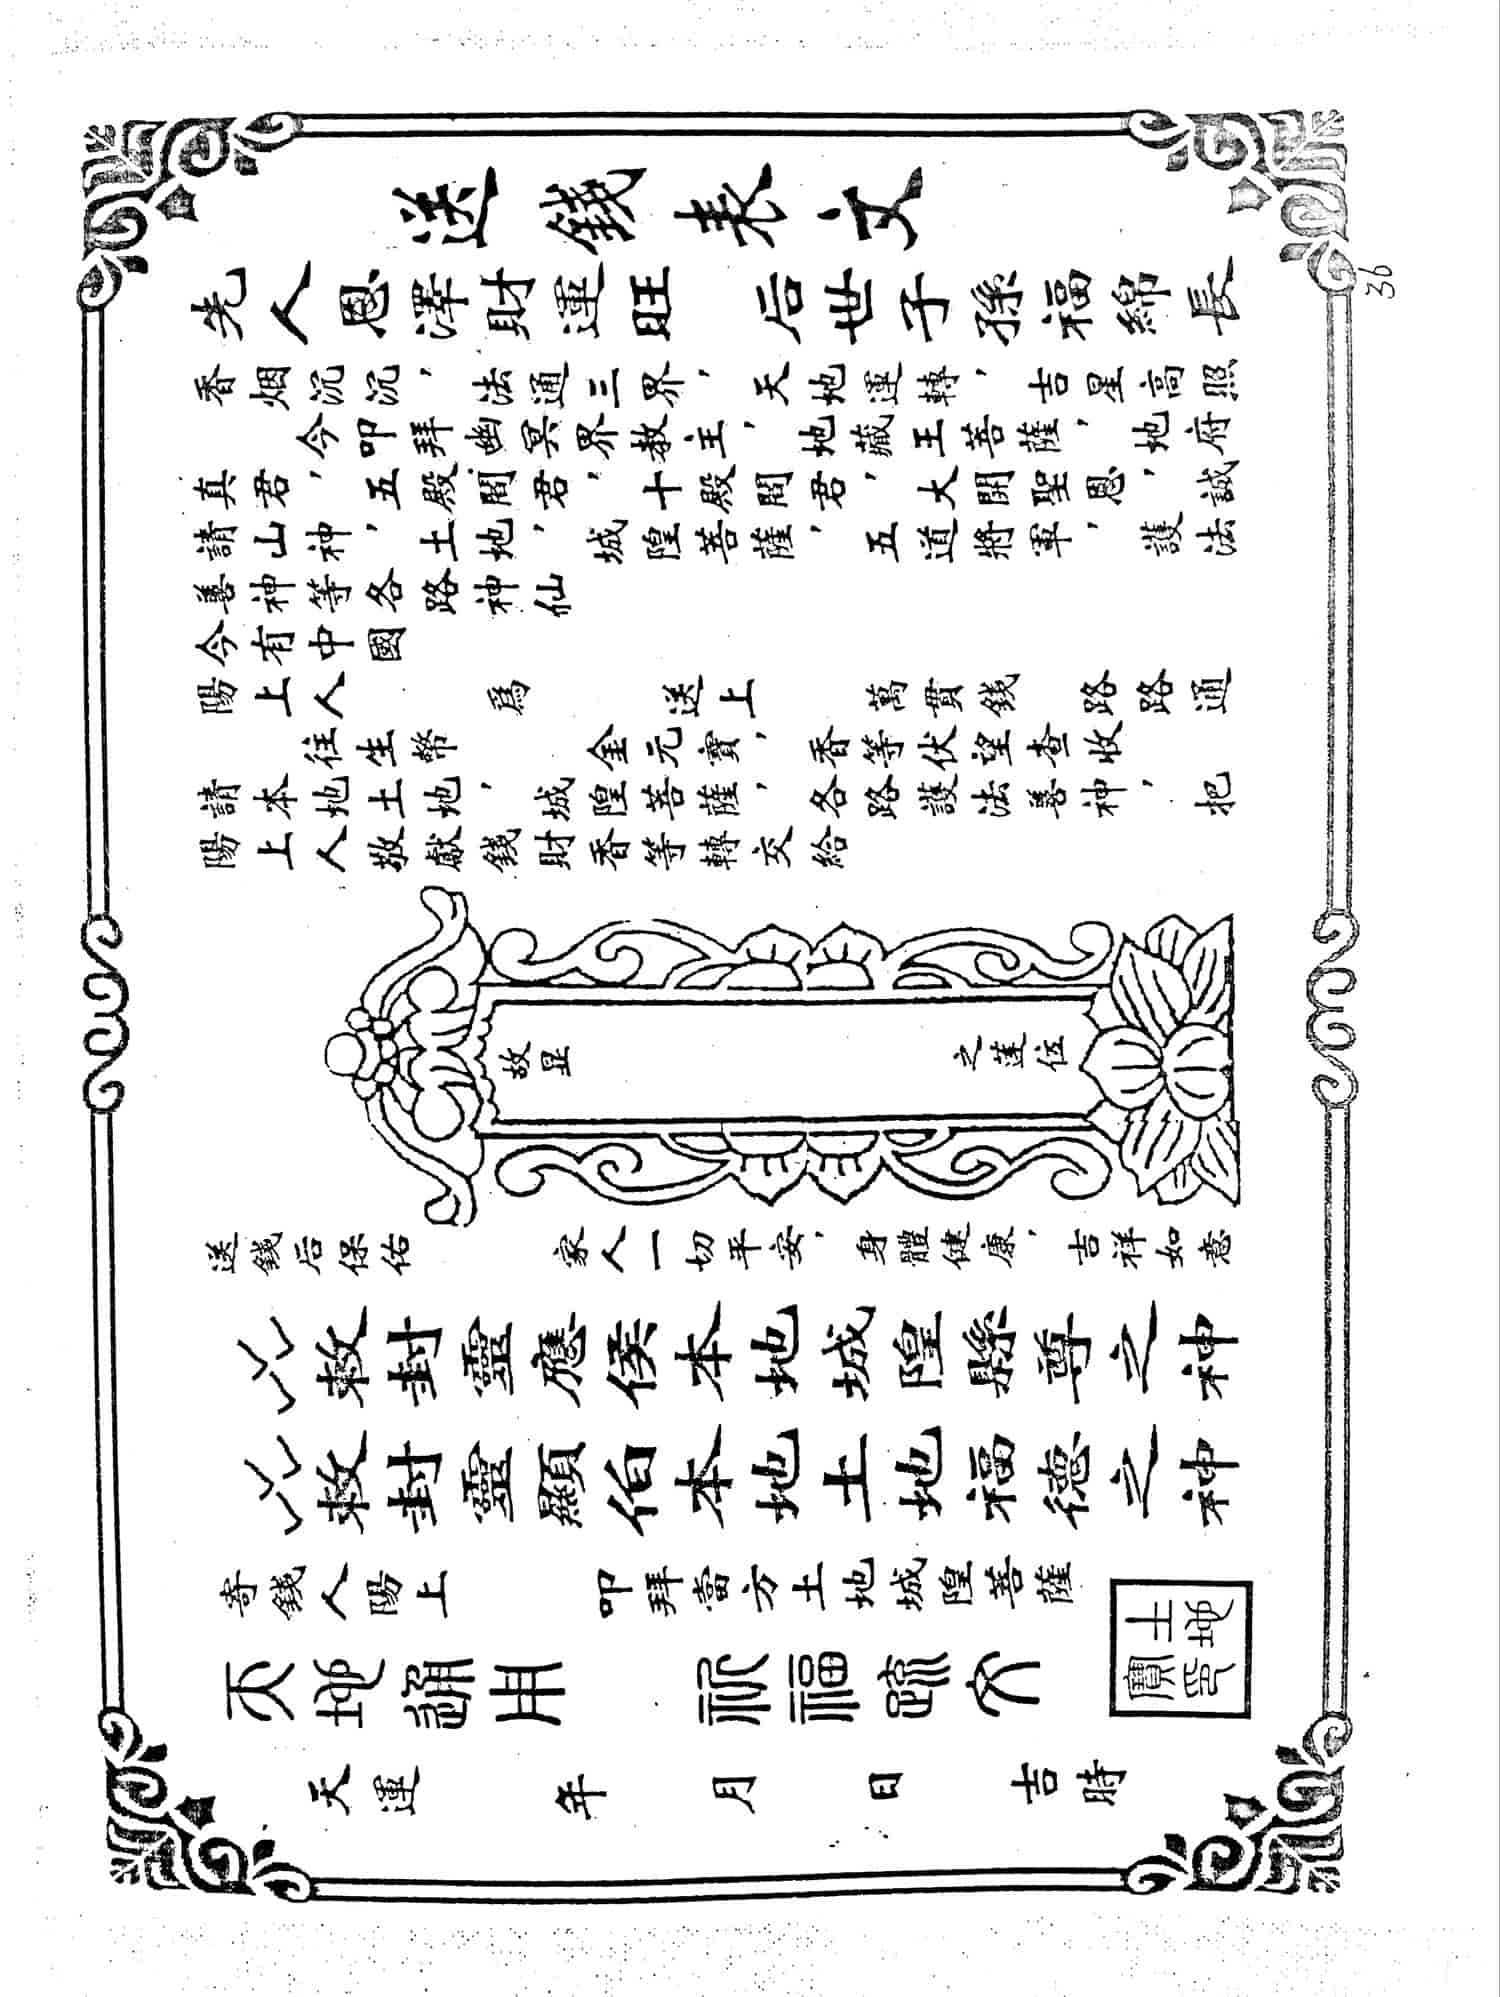 送錢表文
先人恩澤財運旺　后世子孫福綿長
香烟沉沉，法通三界，天地運轉，吉星高照
今叩拜幽冥界教主，地藏王菩薩，地府
真君，五殿閻君，十殿閻君，大開聖恩，誠
請山神，土地，城隍菩薩，五道將軍，護法
善神等各路神仙
今有中國
陽上人　爲　送上　萬貫錢　路路通
往生幣　金元寶，香等伏望查收
請本地土地，城隍菩薩，各路護法善神，把
陽上人敬獻錢財香等轉交給
故显　之蓮位
送錢后保佑　家人一切平安，身體健康，吉祥如意
敕封靈應侯本地城隍縣尊之神
敕封靈顯伯本地土地福德之神
寄錢人陽上　叩拜當方土地城隍菩薩
天地通用　祈福疏文
土地寶印
天運　年　月　日　吉時
36